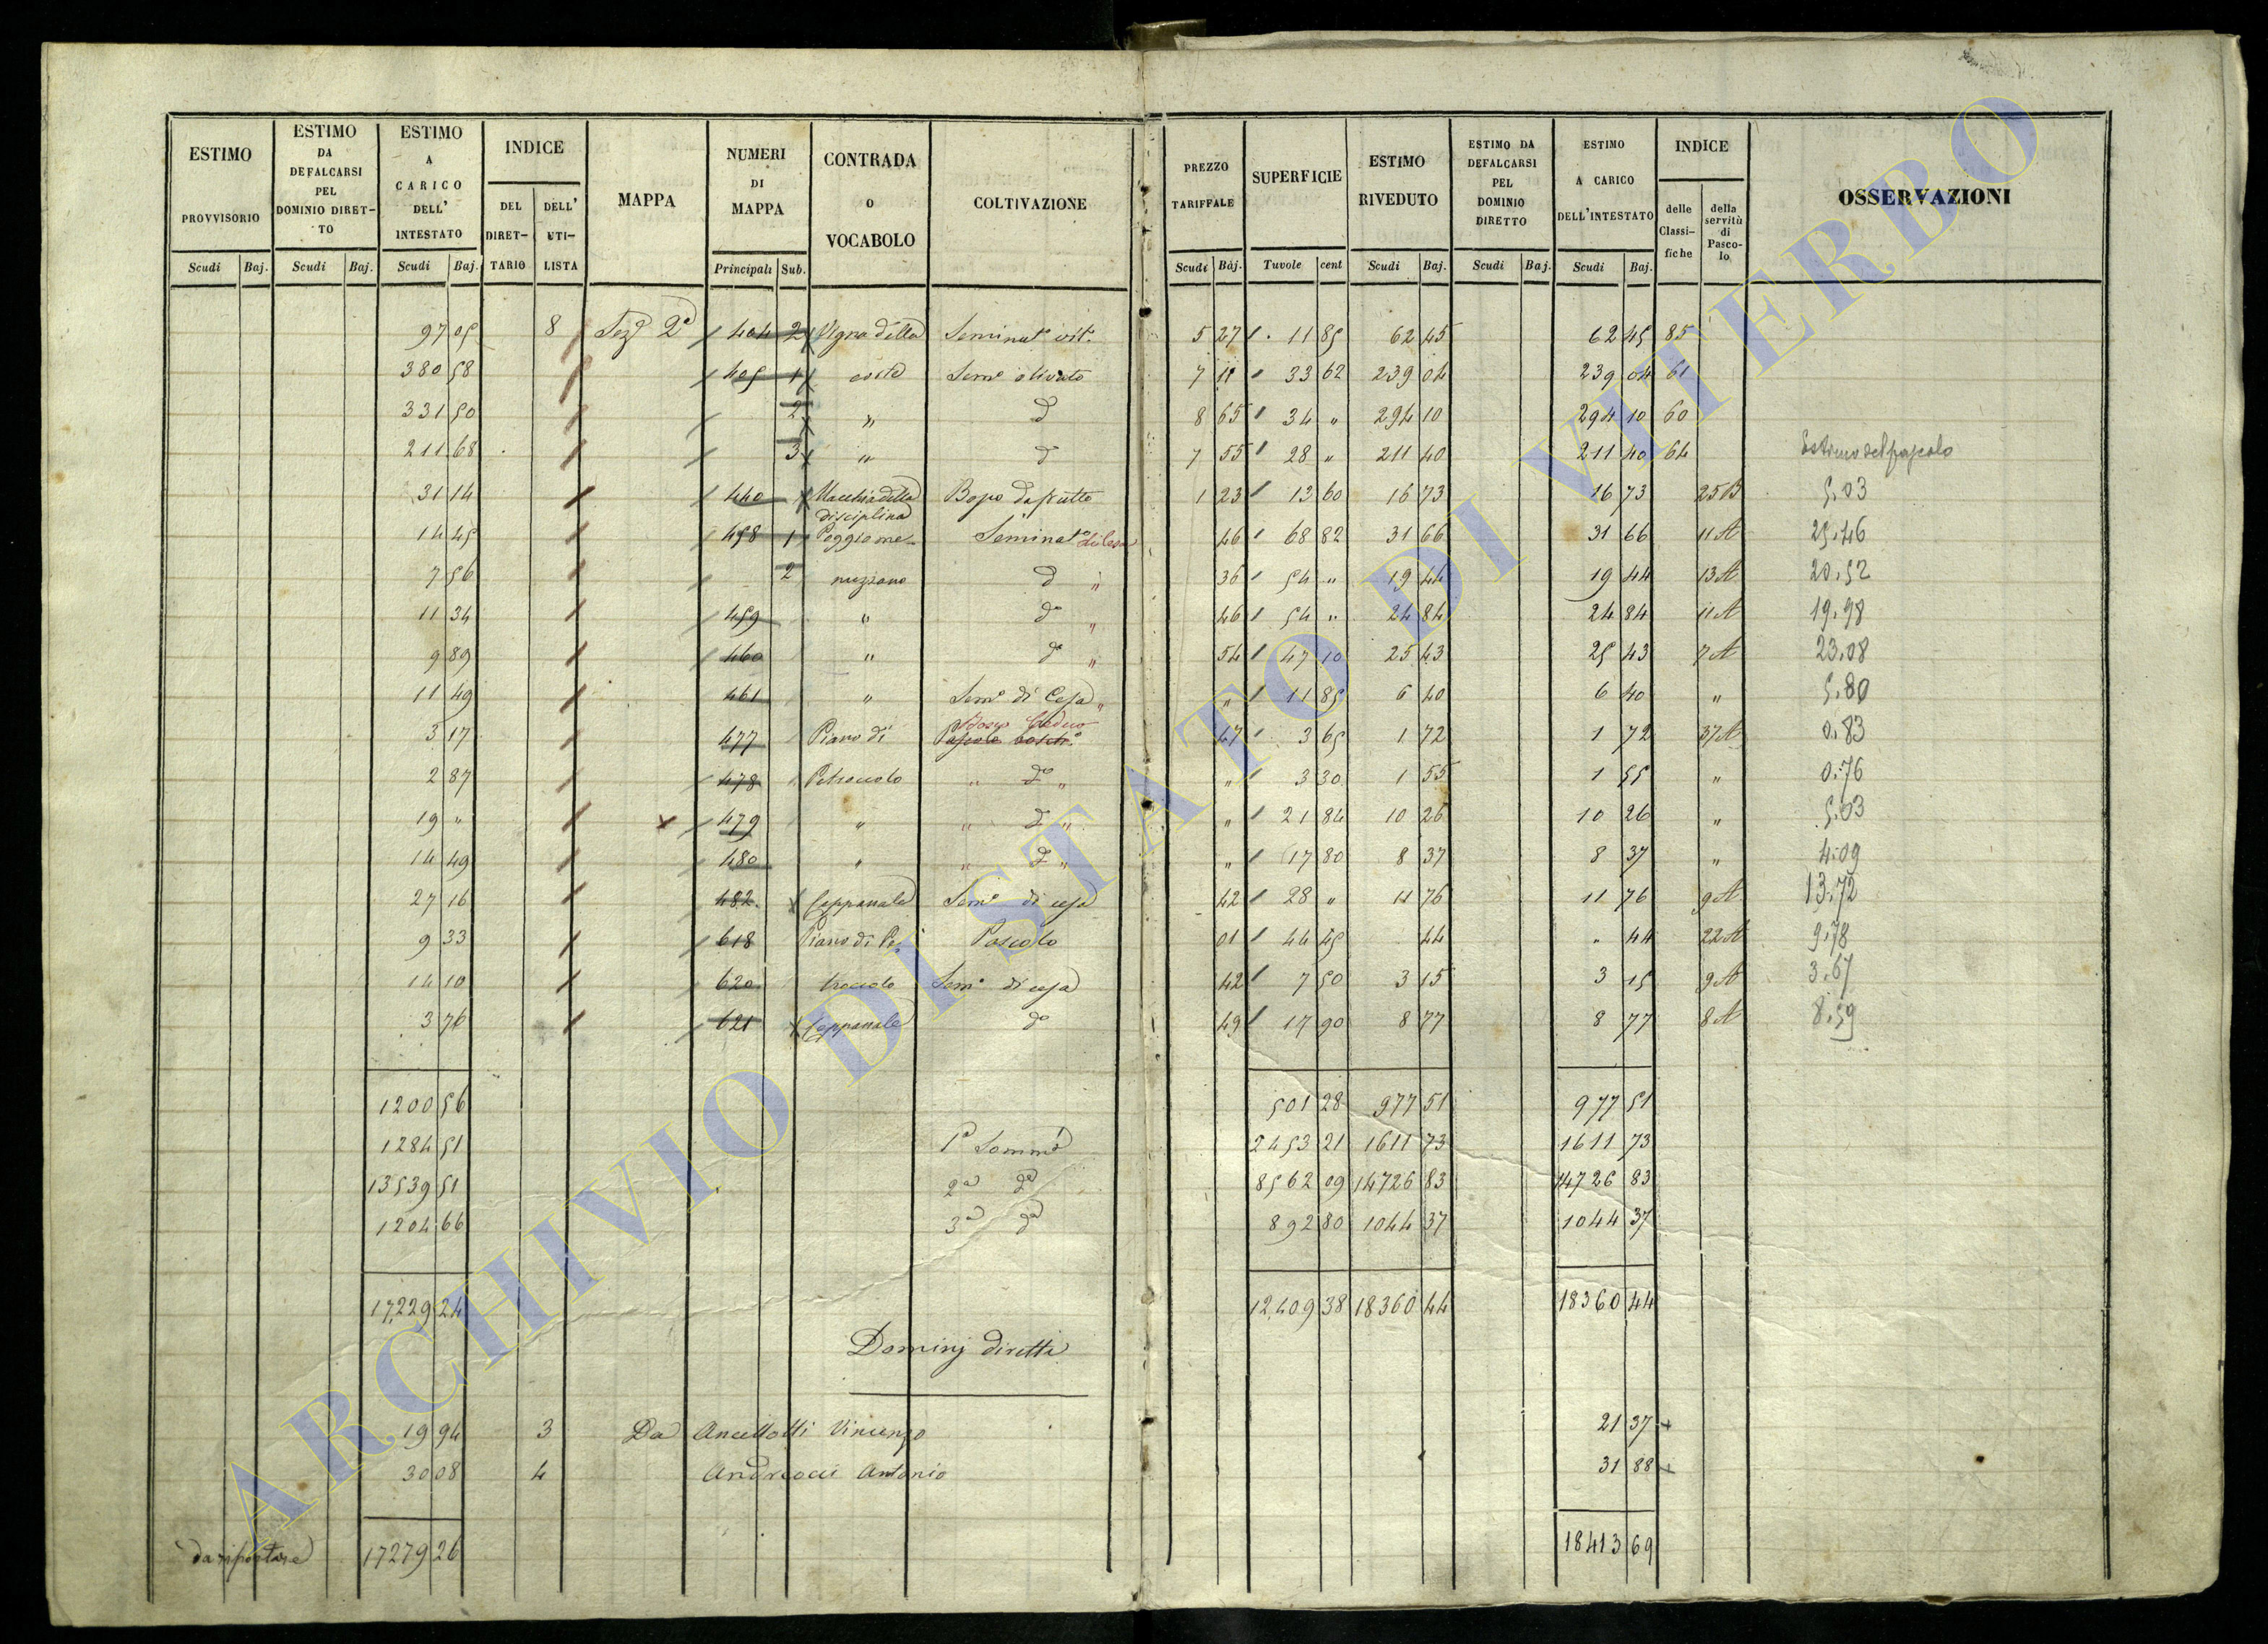 ESTIMO PROVVISORIO | ESTIMO DA DEFALCARSI PEL DOMINIO DIRET-TO | ESTIMO A CARICO DELL' INTESTATO | INDICE DEL DIRET-TARIO | DELL' UTI-LISTA | MAPPA | NUMERI DI MAPPA | CONTRADA O VOCABOLO | COLTIVAZIONE | PREZZO TARIFFALE | SUPERFICIE | ESTIMO RIVEDUTO | ESTIMO DA DEFALCARSI PEL DOMINIO DIRETTO | ESTIMO A CARICO DELL'INTESTATO | INDICE delle Classi-fiche | della servitù di Pasco-lo | OSSERVAZIONI
Scudi Baj. | Scudi Baj. | Scudi Baj. | Principali Sub. | Scudi Baj. | Tavole cent | Scudi Baj. | Scudi Baj. | Scudi Baj.
97 05 8 Sez.e 2a 404 2 Vigna della Seminat.o vit.o 5 27 11 85 62 45 62 45 85
380 58 405 1 costa Sem.o olivato 7 11 33 62 239 04 239 04 61
331 50 2 " d 8 65 34 " 294 10 294 10 60
211 68 3 " d 7 55 28 " 211 40 211 40 64
31 14 440 Macchia della disciplina Bosco da frutto 1 23 13 60 16 73 16 73 25B 5.03
14 45 458 1 Poggio me- Seminat.o di Cesa 46 68 82 31 66 31 66 11A 25.46
7 56 2 nuziano d " 36 54 " 19 44 19 44 13A 20.52
11 34 459 " do " 46 54 " 24 84 24 84 11A 19.98
9 89 460 " do " 54 47 10 25 43 25 43 7A 23.08
11 49 461 " Sem.o di Cesa " " 11 85 6 40 6 40 " 5.80
3 17 477 Piano di Bosco Ceduo Pascolo bosch.o 47 3 65 1 72 1 72 37A 0.83
2 87 478 Petrocolo " do " " 3 30 1 55 1 55 " 0.76
19 " 479 " " do " " 21 84 10 26 10 26 " 5.03
14 49 480 " " do " " 17 80 8 37 8 37 " 4.09
27 16 482 Cappanale Sem.o di cesa 42 28 " 11 76 11 76 9A 13.72
9 33 618 Piano di Pe- Pascolo 01 44 45 44 " 44 22A 9.78
14 10 620 trocolo Sem.o di cesa 42 7 50 3 15 3 15 9A 3.67
3 76 621 Cappanale do 49 17 90 8 77 8 77 8A 8.59
1200 56 501 28 977 51 977 51
1284 51 1a Somma 2453 21 1611 73 1611 73
13539 51 2a da 8562 09 14726 83 14726 83
1204 66 3a da 892 80 1044 37 1044 37
17,229 24 12,409 38 18360 44 18360 44
Dominj diretti
19 94 3 Da Ancellotti Vincenzo 21 37 +
30 08 4 Andreocci Antonio 31 88 +
da riportare 17279 26 18413 69
ARCHIVIO DI STATO DI VITERBO